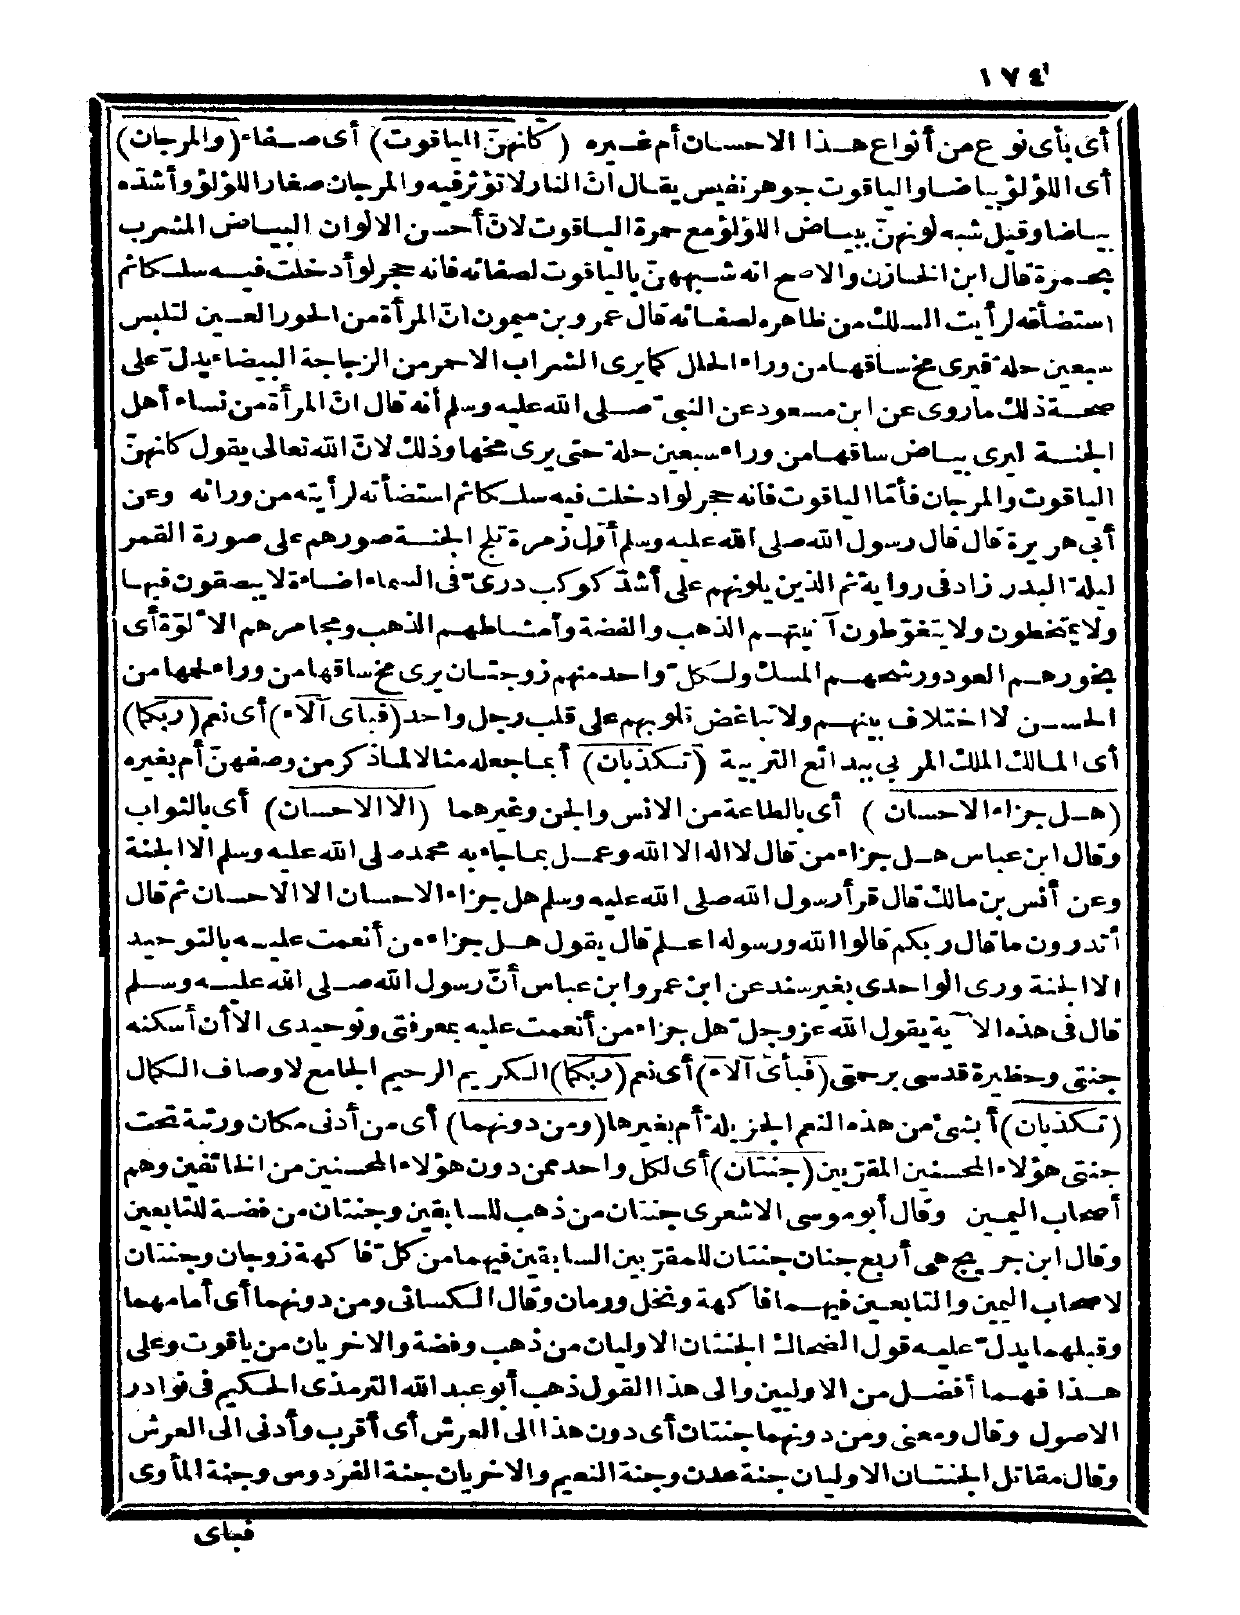 ١٧٤
أى بأى نوع من أنواع هذا الاحسان أم غيره (كأنهنّ الياقوت) أى صفاء (والمرجان)
أى اللؤلؤ بياضا والياقوت جوهر نفيس يقال انّ النار لا تؤثر فيه والمرجان صغار اللؤلؤ وأشدّه
بياضا وقيل شبه لونهنّ ببياض اللؤلؤ مع حمرة الياقوت لانّ أحسن الالوان البياض المشرب
بحمرة قال ابن الخازن والاصح انه شبههنّ بالياقوت لصفائه فانه حجر لو أدخلت فيه سلكا ثم
استضأته لرأيت السلك من ظاهره لصفائه قال عمرو بن ميمون انّ المرأة من الحور العين لتلبس
سبعين حلة فيرى مخ ساقها من وراء الحلل كما يرى الشراب الاحمر من الزجاجة البيضاء يدلّ على
صحة ذلك ما روى عن ابن مسعود عن النبىّ صلى الله عليه وسلم أنه قال انّ المرأة من نساء أهل
الجنة ليرى بياض ساقها من وراء سبعين حلة حتى يرى مخها وذلك لانّ الله تعالى يقول كأنهنّ
الياقوت والمرجان فأمّا الياقوت فانه حجر لو ادخلت فيه سلكا ثم استضأته لرأيته من ورائه وعن
أبى هريرة قال قال رسول الله صلى الله عليه وسلم أوّل زمرة تلج الجنة صورهم على صورة القمر
ليلة البدر زاد فى رواية ثم الذين يلونهم على أشدّ كوكب درىّ فى السماء اضاءة لا يبصقون فيها
ولا يتمخطون ولا يتغوّطون آنيتهم الذهب والفضة وأمشاطهم الذهب ومجامرهم الالوّة أى
بخورهم العود ورشحهم المسك ولكلّ واحد منهم زوجتان يرى مخ ساقها من وراء لحمها من
الحسن لا اختلاف بينهم ولا تباغض قلوبهم على قلب رجل واحد (فبأى آلاء) أى نعم (ربكما)
أى المالك الملك المربى ببدائع التربية (تكذبان) أبما جعله مثالا لما ذكر من وصفهنّ أم بغيره
(هل جزاء الاحسان) أى بالطاعة من الانس والجن وغيرهما (الا الاحسان) أى بالثواب
وقال ابن عباس هل جزاء من قال لا اله الا الله وعمل بما جاء به محمد صلى الله عليه وسلم الا الجنة
وعن أنس بن مالك قال قرأ رسول الله صلى الله عليه وسلم هل جزاء الاحسان الا الاحسان ثم قال
أتدرون ما قال ربكم قالوا الله ورسوله اعلم قال يقول هل جزاء من أنعمت عليه بالتوحيد
الا الجنة وروى الواحدى بغير سند عن ابن عمر وابن عباس أنّ رسول الله صلى الله عليه وسلم
قال فى هذه الآية يقول الله عز وجلّ هل جزاء من أنعمت عليه بمعرفتى وتوحيدى الا أن أسكنه
جنتى وحظيرة قدسى برحمتى (فبأى آلاء) أى نعم (ربكما) الكريم الرحيم الجامع لاوصاف الكمال
(تكذبان) أبشئ من هذه النعم الجزيلة أم بغيرها (ومن دونهما) أى من أدنى مكان ورتبة تحت
جنتى هؤلاء المحسنين المقرّبين (جنتان) أى لكل واحد ممن دون هؤلاء المحسنين من الخائفين وهم
أصحاب اليمين وقال أبو موسى الاشعرى جنتان من ذهب للسابقين وجنتان من فضة للتابعين
وقال ابن جريج هى أربع جنان جنتان للمقرّبين السابقين فيهما من كلّ فاكهة زوجان وجنتان
لاصحاب اليمين والتابعين فيهما فاكهة ونخل ورمان وقال الكسائى ومن دونهما أى أمامهما
وقبلهما يدلّ عليه قول الضحاك الجنتان الاوليان من ذهب وفضة والاخريان من ياقوت وعلى
هذا فهما أفضل من الاوليين والى هذا القول ذهب أبو عبد الله الترمذى الحكيم فى نوادر
الاصول وقال ومعنى ومن دونهما جنتان أى دون هذا الى العرش أى أقرب وأدنى الى العرش
وقال مقاتل الجنتان الاوليان جنة عدن وجنة النعيم والاخريان جنة الفردوس وجنة المأوى
فبأى